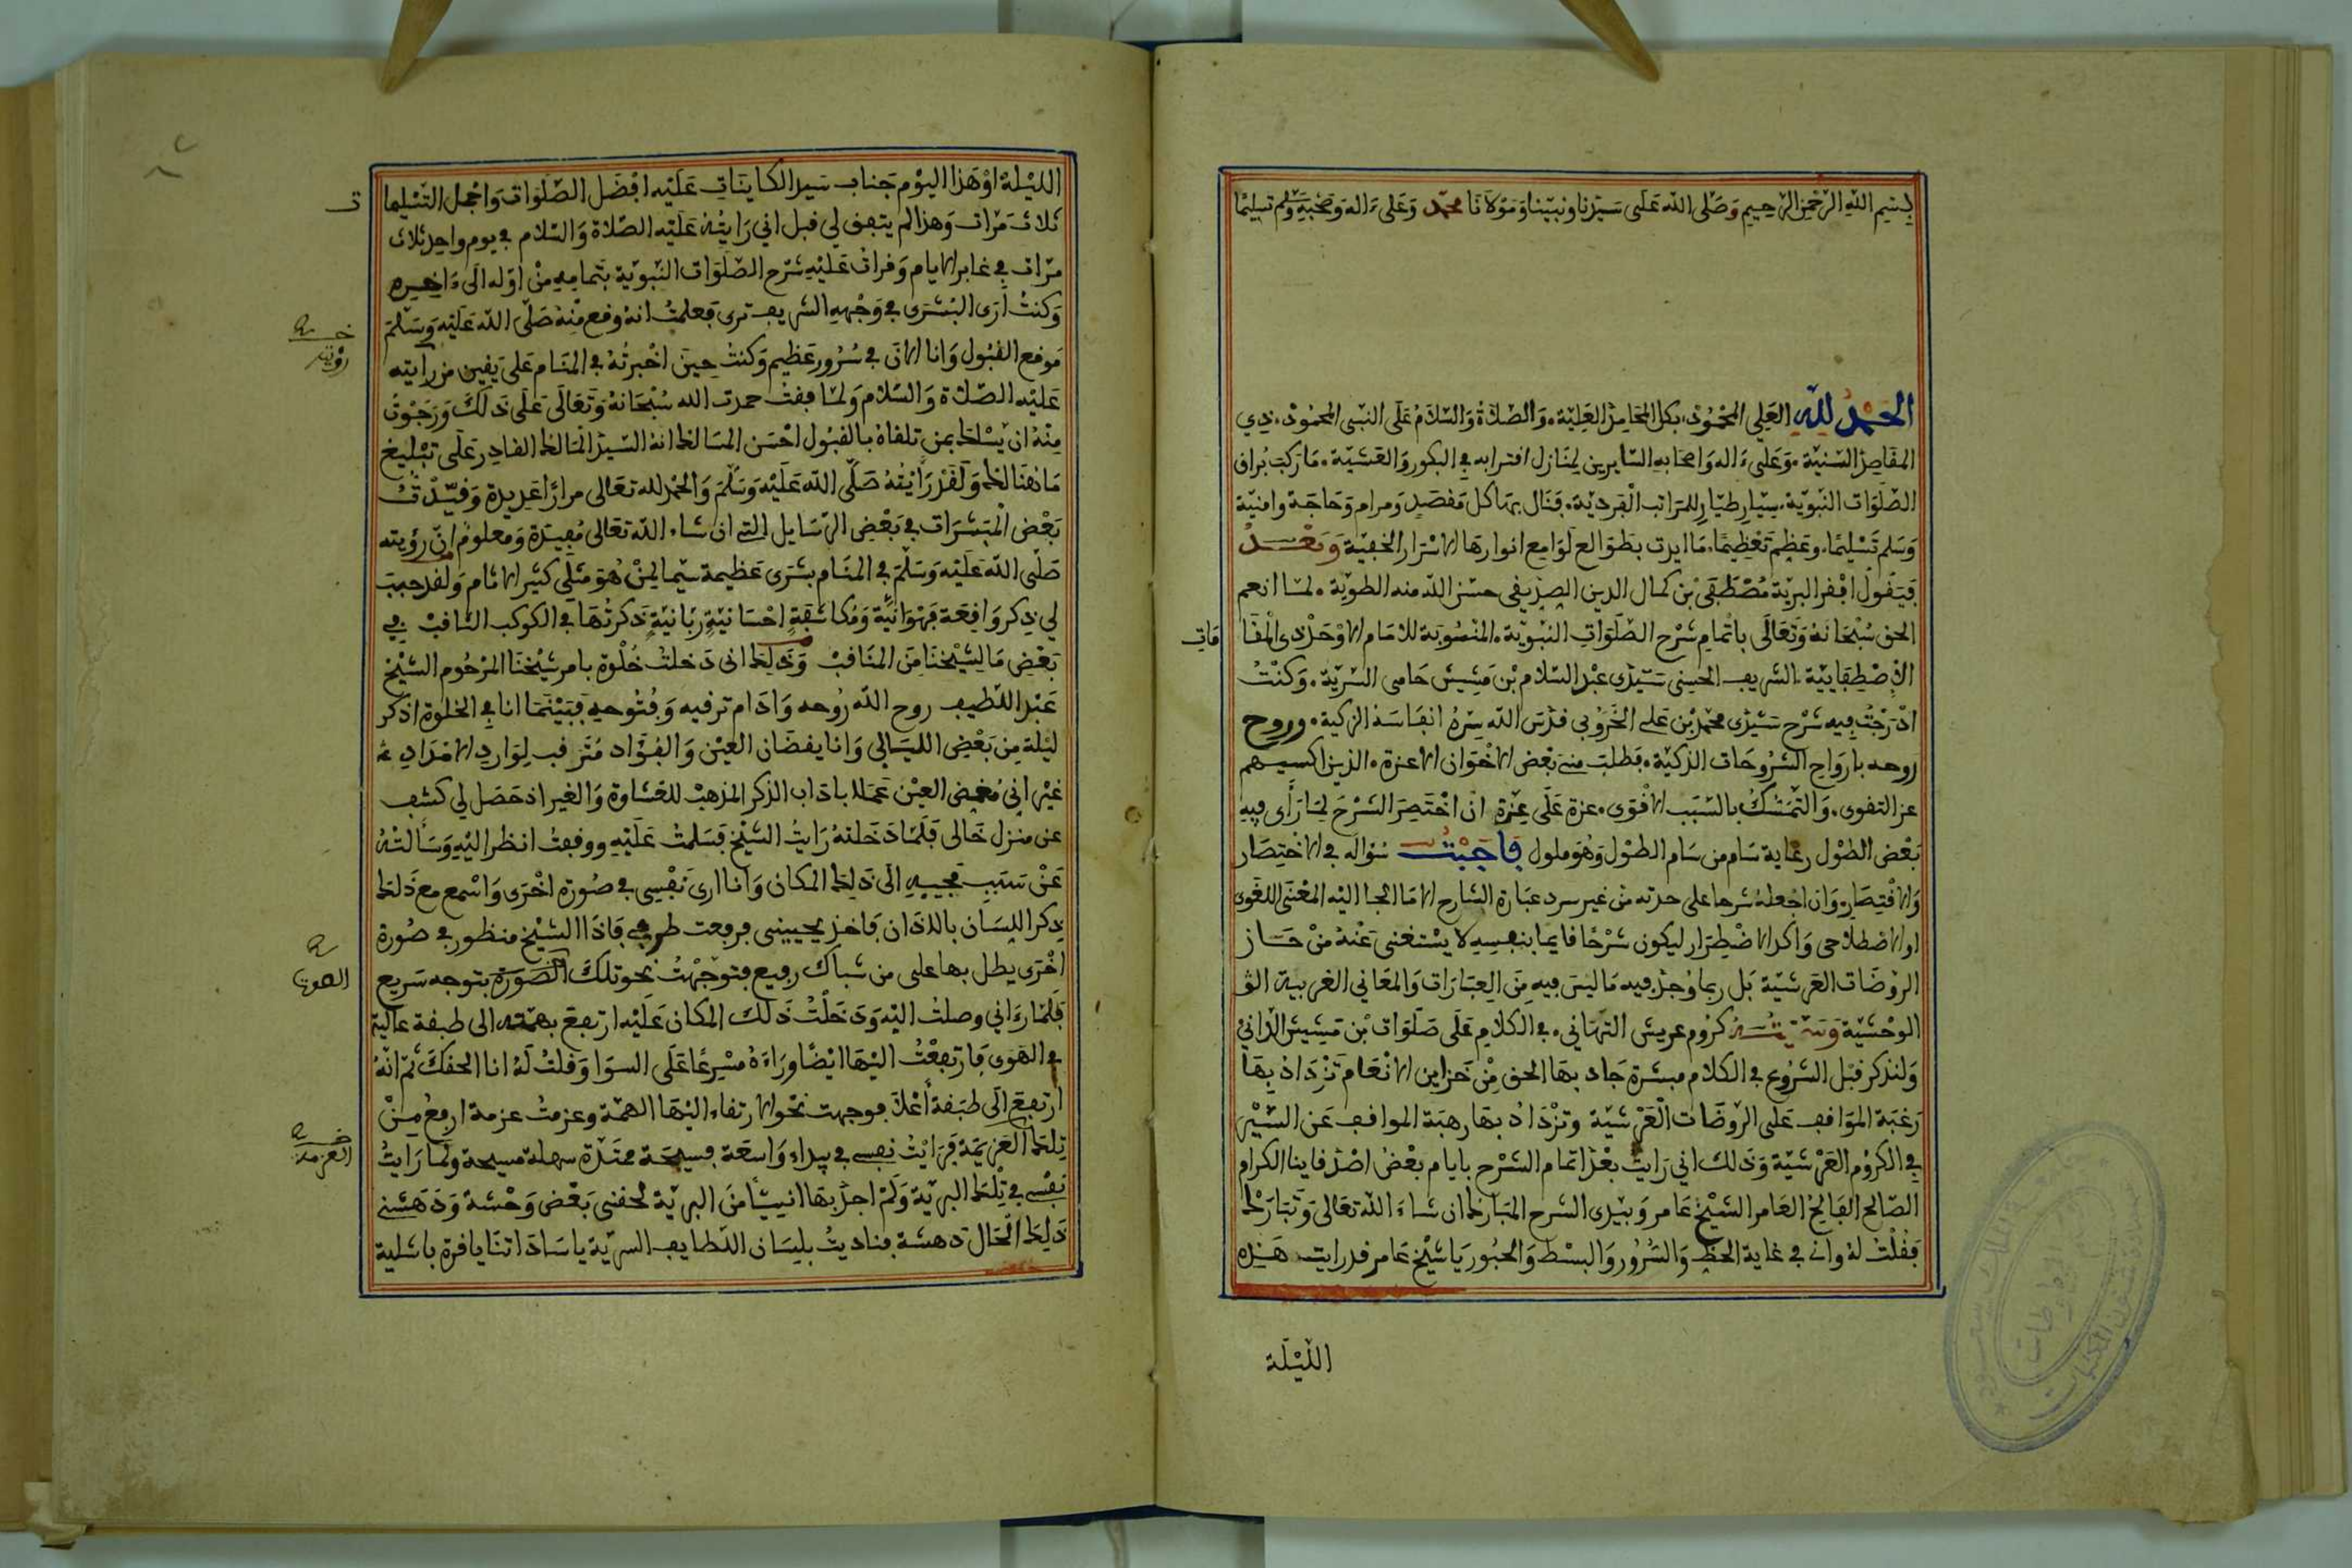 بسم الله الرحمن الرحيم وصلى الله على سيدنا ونبينا ومولانا محمد وعلى ءاله وصحبه وسلم تسليما
الحمد لله العلي المحمود، بكل المحامد العلية، والصلاة والسلام على النبي المحمود، ذي
المقاصد السنية، وعلى ءاله واصحابه السايرين لمنازل اقترابه في البكور والعشية، ما ركب براق
الصلوات النبوية، سيار طيار للمراتب الفردية، فنال بها كل مقصد ومرام وحاجة وامنية
وسلم تسليما، وعظم تعظيما، ما ابدت بطوالع لوامع انوارها الاسرار الخفية وبعد
فيقول افقر البرية مصطفى بن كمال الدين الصديقي حسن الله منه الطوية، لما انعم
الحق سبحانه وتعالى باتمام شرح الصلوات النبوية، المنسوبة للامام الاوحد ذي المقا
مات
الاصطفايية، الشريف الحسني سيدي عبد السلام بن مشيش حامي السرية، وكنت
ادرجت فيه شرح سيدي محمد بن علي الخروبي قدس الله سره انفاسه الزكية، وروح
روحه بارواح الشروحات الذكية، فطلب مني بعض الاخوان الاعزة، الذين اكسبهم
عز التقوى، والتمسك بالسبب الاقوى، عزة على عزة ان اختصر الشرح لما رأى فيه
بعض الطول رعاية سام من سام الطول وهو ملول فاجبت سؤاله في الاختصار
والاقتصار، وان اجعله شرحا على حدته من غير سرد عبارة الشارح الا ما الجا اليه المعنى اللغوي
او الاصطلاحي واكد الاضطرار ليكون شرحا قايما بنفسه لا يستغنى عنه من حاز
الروضات العرشية بل ربما وجد فيه ما ليس فيه من العبارات والمعاني الغريبة الو
الوحشية وسميته كروم عريش التهاني، في الكلام على صلوات بن مشيش الداني
ولنذكر قبل الشروع في الكلام مبشرة جاد بها الحق من خزاين الانعام تزداد بها
رغبة الموافف على الروضات العرشية وتزداد بها رهبة الموافف عن السير
في الكروم العرشية وذلك اني رايت بعد اتمام الشرح بايام بعض اصدقاينا الكرام
الصالح الفالح العامر الشيخ عامر وبيدي الشرح المبارك ان شاء الله تعالى وتبارك
فقلت له واني في غاية الحظ والسرور والبسط والحبور يا شيخ عامر قد رايت هذه
الليلة
الليلة او هذا اليوم جناب سيد الكاينات عليه افضل الصلوات واجمل التسليما
ت
ثلاث مرات وهذا لم يتفق لي قبل اني رايته عليه الصلاة والسلام في يوم واحد ثلاث
مرات في غابر الايام وقرات عليه شرح الصلوات النبوية بتمامه من اوله الى ءاخره
وكنت ارى البشرى في وجهه الشريف ترى فعلمت انه وقع منه صلى الله عليه وسلم
موقع القبول وانا الان في سرور عظيم وكنت حين اخبرته في المنام على يقين من رايته
رؤيته
عليه الصلاة والسلام ولما فقت حمدت الله سبحانه وتعالى على ذلك ورجوت
منه ان يسلك بمن تلقاه بالقبول احسن المسالك انه السيد المالك القادر على تبليغ
ما هنالك ولقد رايته صلى الله عليه وسلم والحمد لله تعالى مرارا عديدة وقيدت
بعض المبشرات في بعض الرسايل التي ان شاء الله تعالى مفيدة ومعلوم ان رؤيته
صلى الله عليه وسلم في المنام بشرى عظيمة سيما لمن هو مثلي كثير الاثام ولقد حبب
لي ذكر واقعة فهوانية ومكاشفة احسانية ربانية ذكرتها في الكوكب الثاقب في
بعض ما لشيخنا من المناقب وذلك اني دخلت خلوة بامر شيخنا المرحوم الشيخ
عبد اللطيف روح الله روحه وادام ترقيه وفتوحه فبينما انا في الخلوة اذكر
ليلة من بعض الليالي وانا يقظان العين والفؤاد مترقب لوارد الامداد
غير اني مغمض العين عملا باداب الذكر المذهب للغشاوة والغير اذ حصل لي كشف
عن منزل خالي فلما دخلته رايت الشيخ فسلمت عليه ووقفت انظر اليه وسألته
عن سبب مجييه الى ذلك المكان وانا ارى نفسي في صورة اخرى واسمع مع ذلك
ذكر اللسان بالاذان فاخذ يجيبني فرفعت طرفي فاذا الشيخ منظور في صورة
اخرى يطل بها على من شباك رفيع فتوجهت نحو تلك الصورة بتوجه سريع
فلما رءاني وصلت اليه ودخلت ذلك المكان عليه ارتفع بهمته الى طبقة عالية
في الهوى فارتفعت اليها ايضا وراءه مسرعا على السوا وقلت له انا الحقك ثم انه
ارتفع الى طبقة أعلا فوجهت نحو الارتقاء اليها الهمة وعزمت عزمة ارفع من
تلك العزيمة فرايت نفسي في بيداء واسعة فسيحة ممتدة سهلة مسيحة ولما رايت
العزمة
نفسي في تلك البرية ولم اجد بها انيسا من البرية لحقني بعض وحشة ودهشني
ذلك الحال دهشة فناديت بلسان اللطايف السرية يا ساداتنا يا قرة باسلية